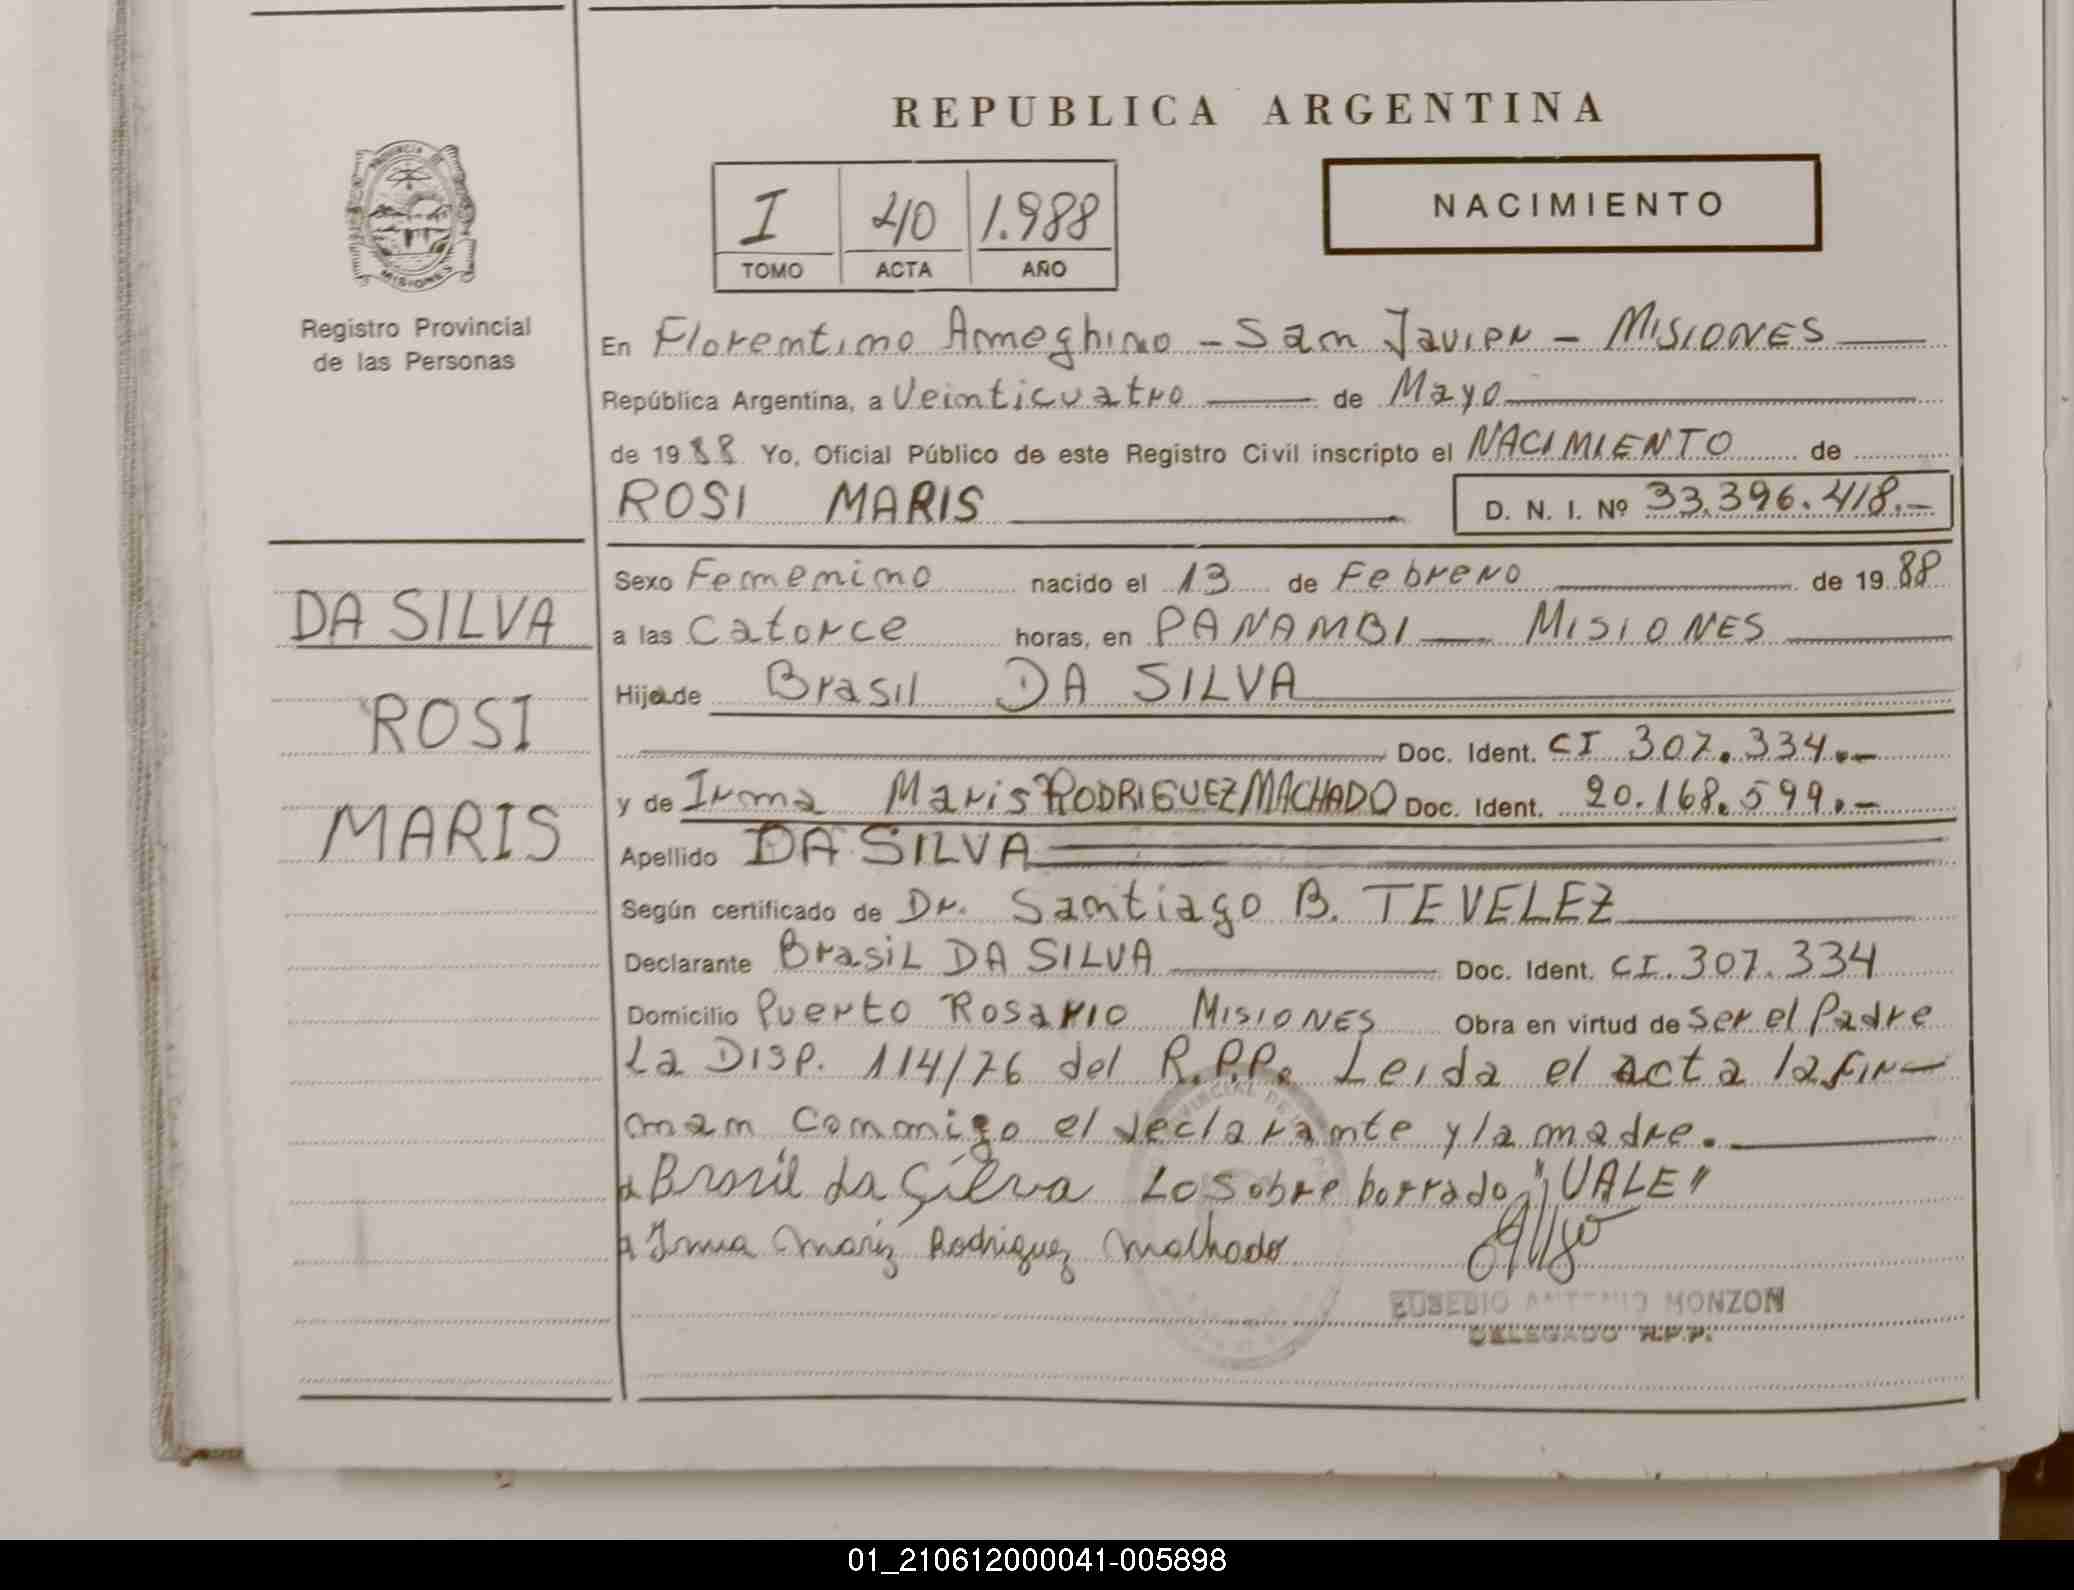 REPUBLICA ARGENTINA
PROVINCIA DE
MISIONES
Registro Provincial
de las Personas
I 40 1.988
TOMO ACTA AÑO
NACIMIENTO
En Florentino Ameghino - San Javier - MISIONES
República Argentina, a Veinticuatro de Mayo
de 1988 Yo, Oficial Público de este Registro Civil inscripto el NACIMIENTO de
ROSI MARIS D. N. I. Nº 33.396.418.-
DA SILVA
ROSI
MARIS
Sexo Femenino nacido el 13 de Febrero de 1988
a las Catorce horas, en PANAMBI MISIONES
Hija de Brasil DA SILVA
Doc. Ident. CI 307.334.-
y de Irma Maris RODRIGUEZ MACHADO Doc. Ident. 20.168.599.-
Apellido DA SILVA
Según certificado de Dr. Santiago B. TEVELEZ
Declarante Brasil DA SILVA Doc. Ident. CI. 307.334
Domicilio Puerto Rosario MISIONES Obra en virtud de Ser el Padre
La DISP. 114/76 del R.P.P. Leida el acta la fir-
man conmigo el declarante y la madre.
Brasil da Silva Lo sobre borrado "VALE"
Irma Maris Rodriguez Malhado
EUSEBIO ANTONIO MONZON
DELEGADO R.P.P.
01_210612000041-005898